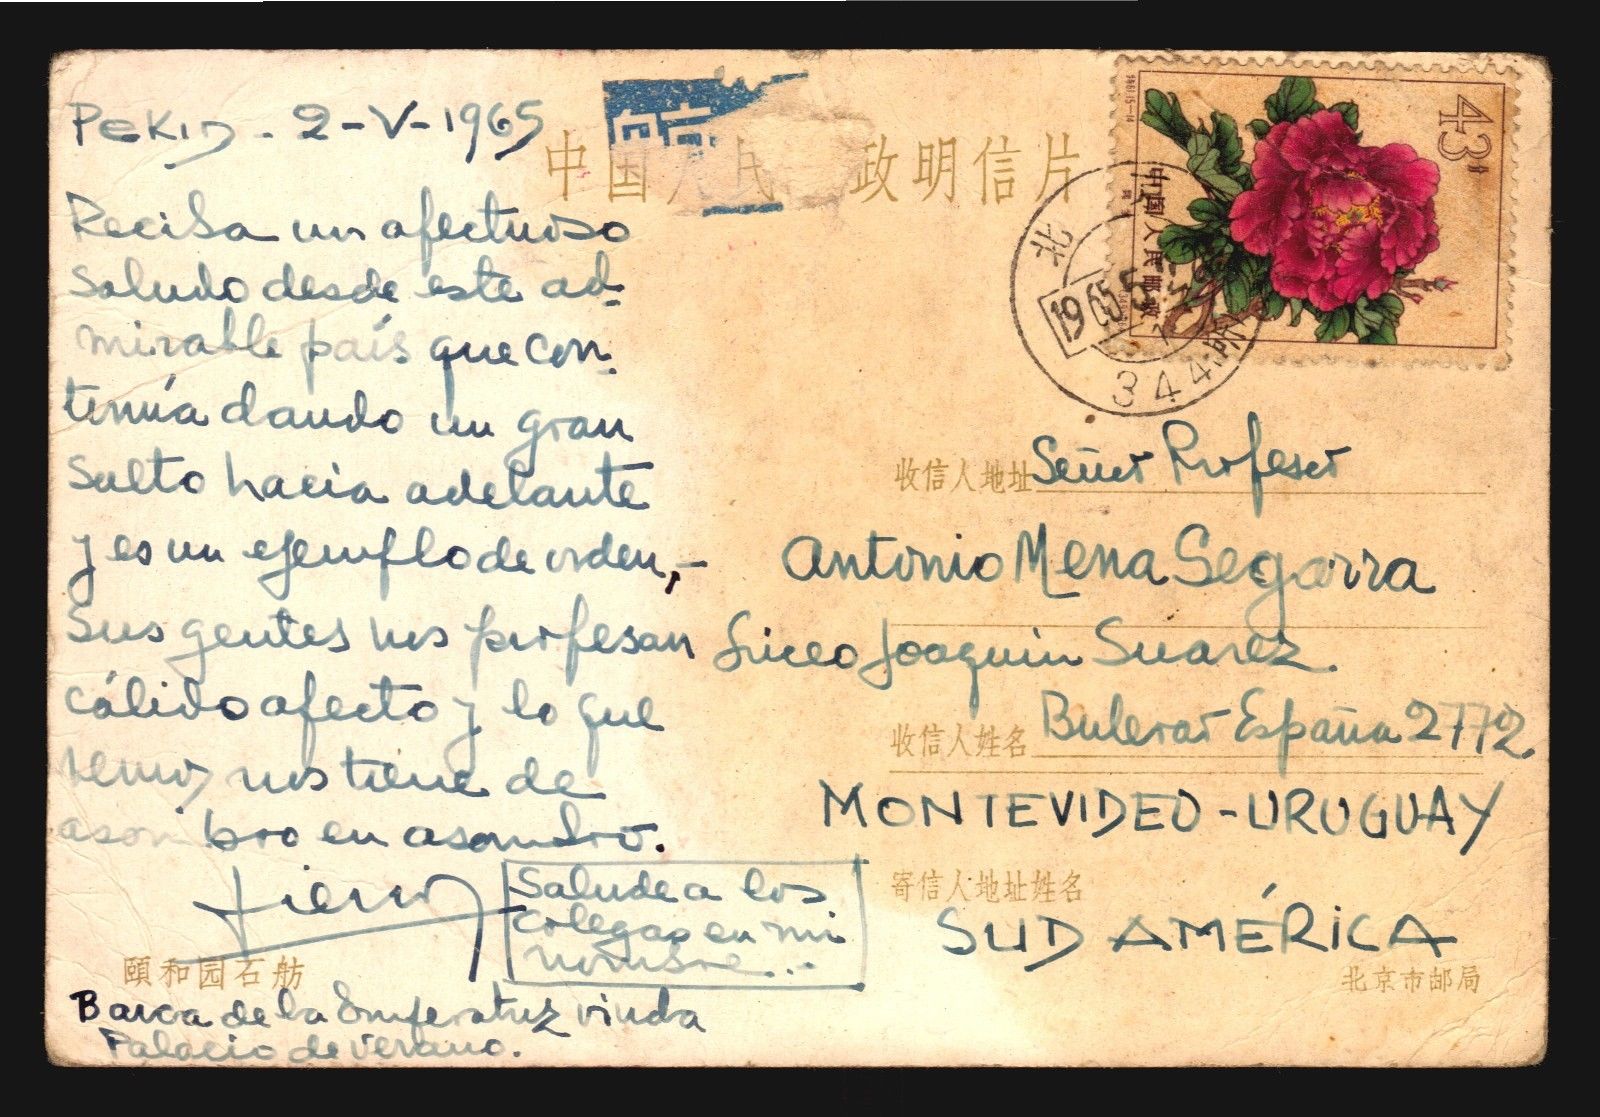 PEKIN - 2-V-1965
Reciba un afectuoso
saludo desde este ad-
mirable país que con-
tinúa dando un gran
Salto hacia adelante
y es un ejemplo de orden,-
Sus gentes nos profesan
cálido afecto y lo que
vemos nos tiene de
asombro en asombro.
Saludea los
colegas en mi
nombre...
颐和园石舫
Barca de la Emperatriz viuda
Palacio de Verano.
中国人民 政明信片
43
中国人民邮政
北
1965
344
收信人地址 Señor Profesor
Antonio Mena Segarra
Liceo Joaquin Suarez.
收信人姓名 Bulevar España 2772.
MONTEVIDEO - URUGUAY
寄信人地址姓名
SUD AMÉRICA
北京市邮局